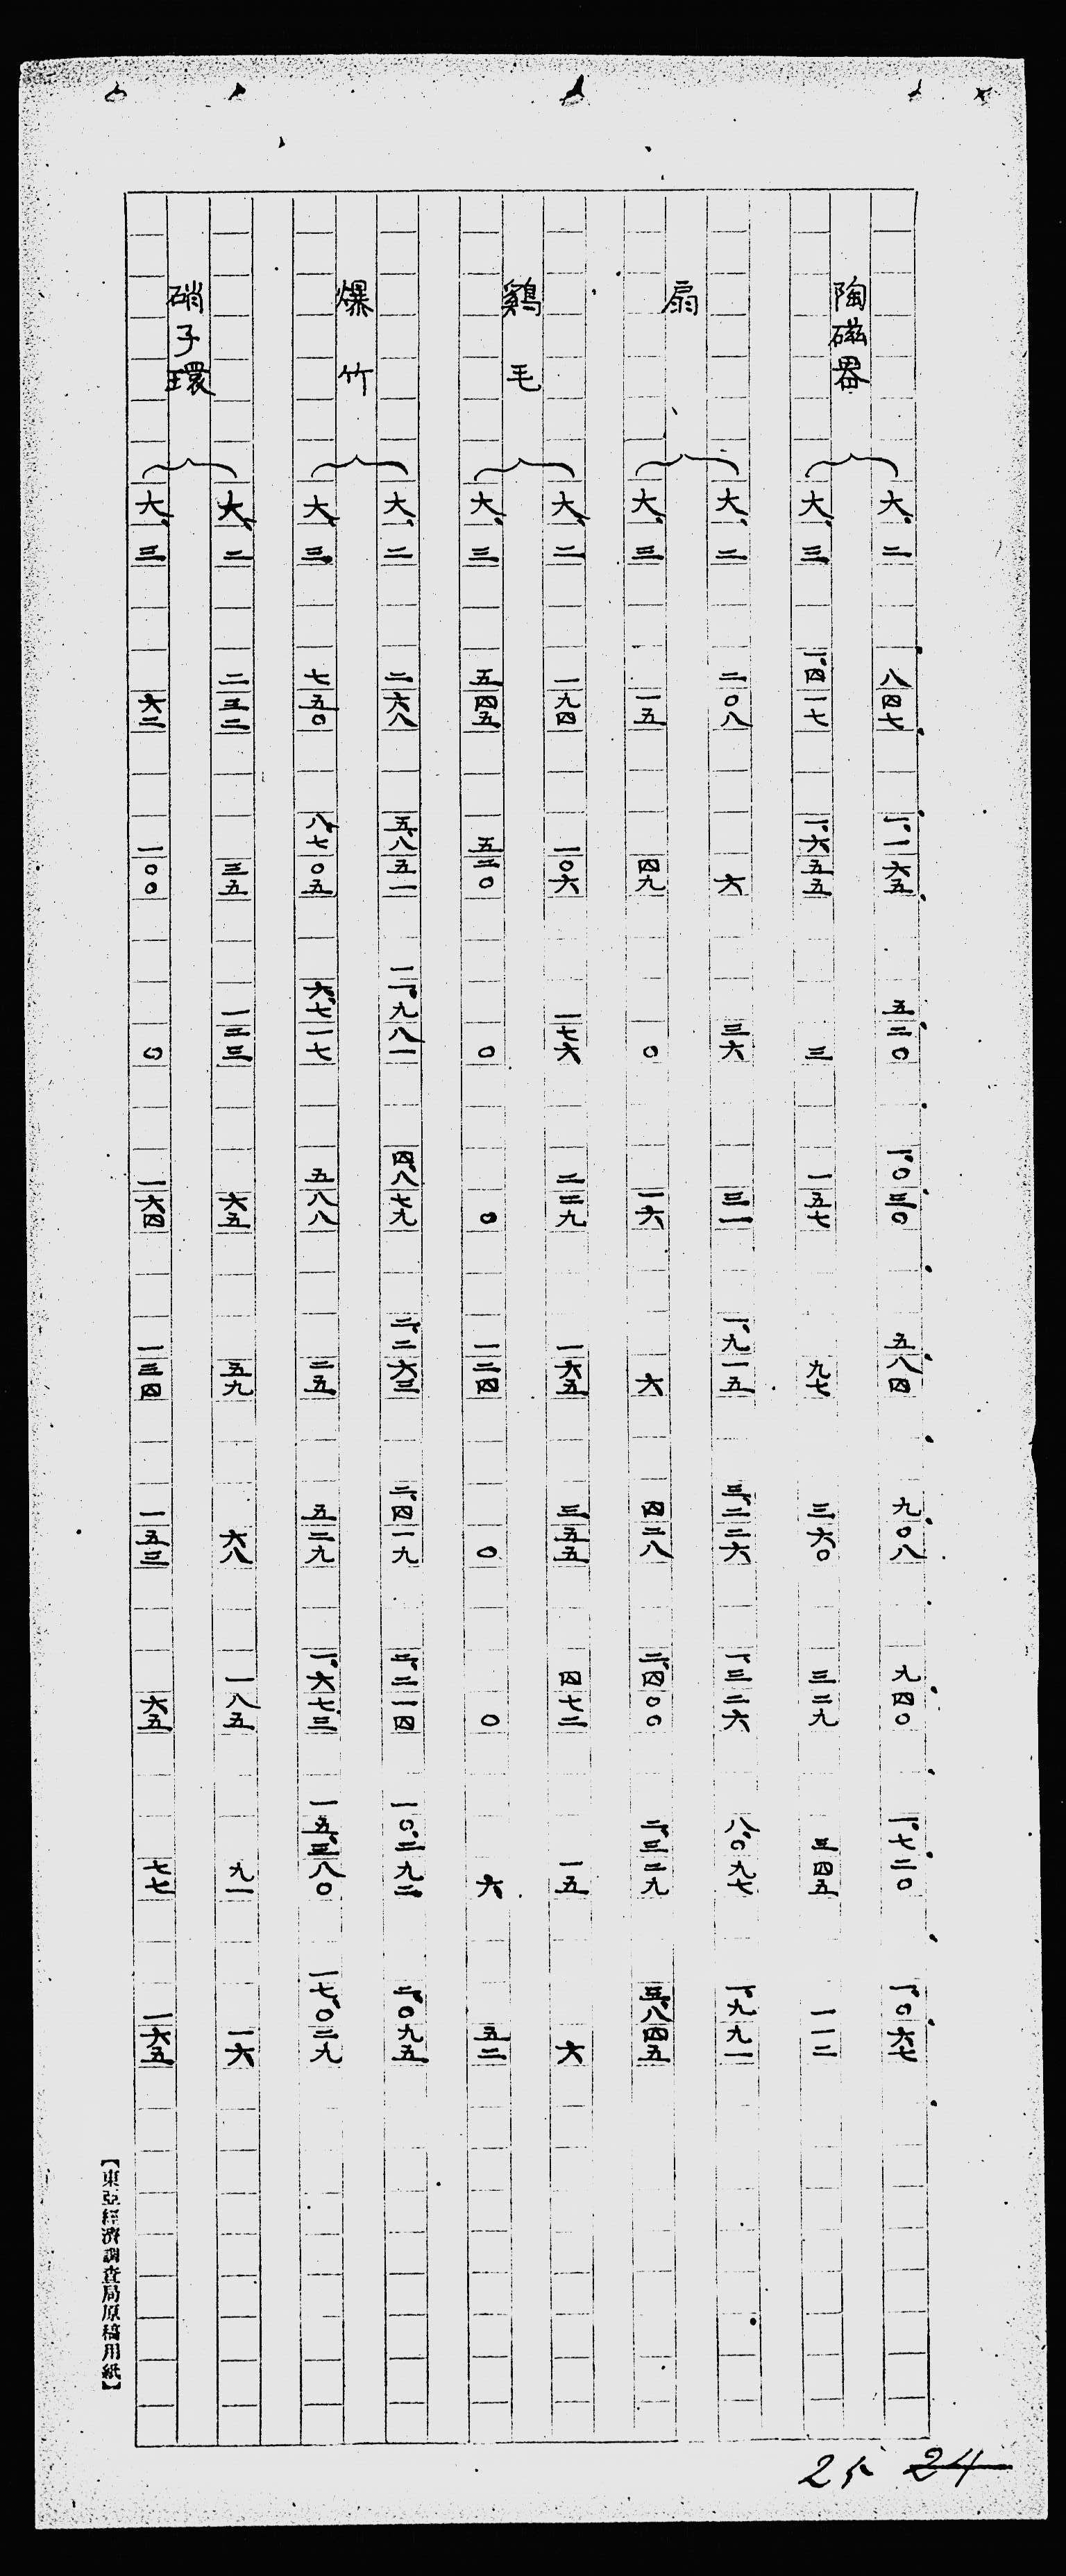 陶磁器
大、二 八四七 一、一六五 五二〇 一、〇三〇 五八四 九〇八 九四〇 一、七二〇 一、〇六七
大、三 一、四一七 一、六五五 三 一五七 九七 三六〇 三二九 三四五 一一二
扇
大、二 二〇八 六 三六 三一 一、九一五 三、二二六 一、三二六 八、〇九七 一、九九一
大、三 一五 四九 〇 一六 六 四二八 二、四〇〇 二、三二九 三、八四五
鷄毛
大、二 一九四 一〇六 一七六 二二九 一六五 三五五 四七二 一五 六
大、三 五四五 五二〇 〇 〇 一二四 〇 〇 六 五二
爆竹
大、二 二六八 五、八五一 一二、九八一 四、八七九 二、二六三 二、四一九 三、二一四 一〇、二九二 二、〇九五
大、三 七五〇 八、七〇五 六、七一七 五八八 二五 五二九 一、六七三 一五、三八〇 一七、〇二九
硝子環
大、二 二三二 三五 一二三 六五 五九 六八 一八五 九一 一六
大、三 六二 一〇〇 〇 一六四 一三四 一五三 六五 七七 一六五
【東亞經濟調査局原稿用紙】
25 24